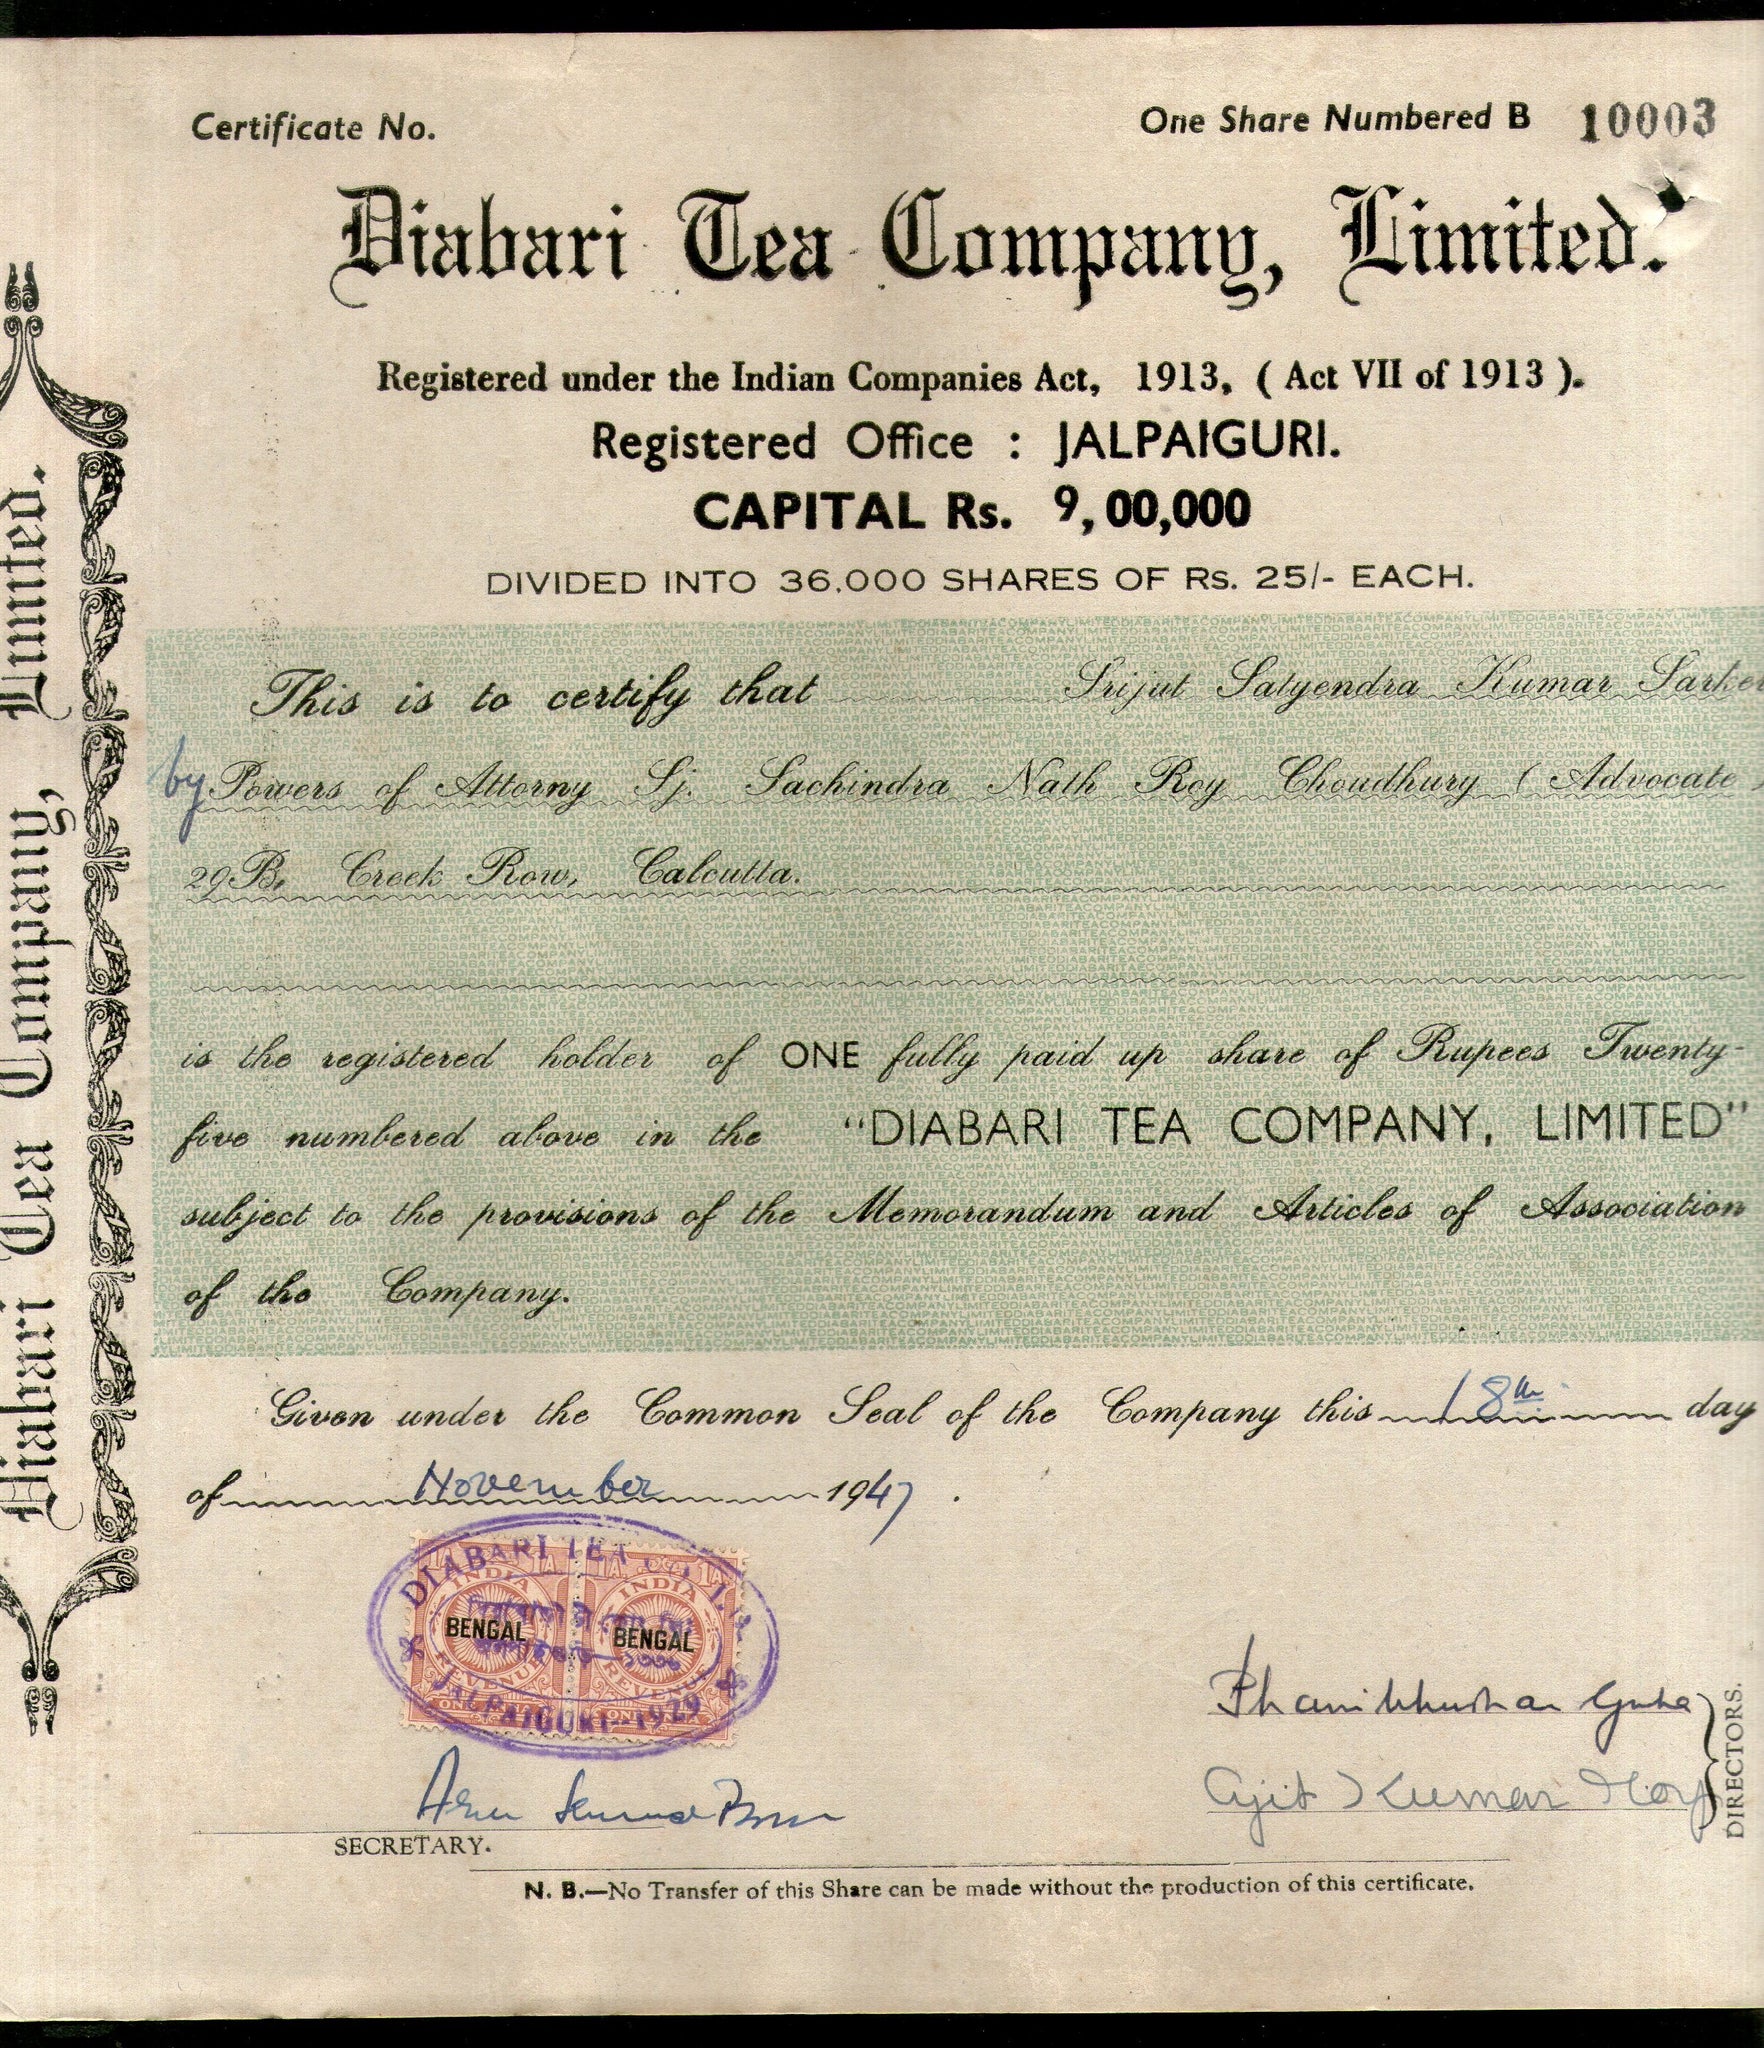 Certificate No.
One Share Numbered B 10003
Diabari Tea Company, Limited.
Registered under the Indian Companies Act, 1913, ( Act VII of 1913 ).
Registered Office : JALPAIGURI.
CAPITAL Rs. 9,00,000
DIVIDED INTO 36,000 SHARES OF Rs. 25/- EACH.
This is to certify that Srijut Satyendra Kumar Sarker
by Powers of Attorny Sj. Sachindra Nath Roy Choudhury ( Advocate )
29B, Creek Row, Calcutta.
is the registered holder of ONE fully paid up share of Rupees Twenty-
five numbered above in the "DIABARI TEA COMPANY, LIMITED"
subject to the provisions of the Memorandum and Articles of Association
of the Company.
Given under the Common Seal of the Company this 18th day
of November 1947.
DIABARI TEA CO. LTD.
INDIA INDIA
BENGAL BENGAL
REVENUE REVENUE
JALPAIGURI-1929
Phanibhushan Guha
Ajit Kumar Roy
DIRECTORS.
SECRETARY.
N. B.—No Transfer of this Share can be made without the production of this certificate.
Diabari Tea Company, Limited.